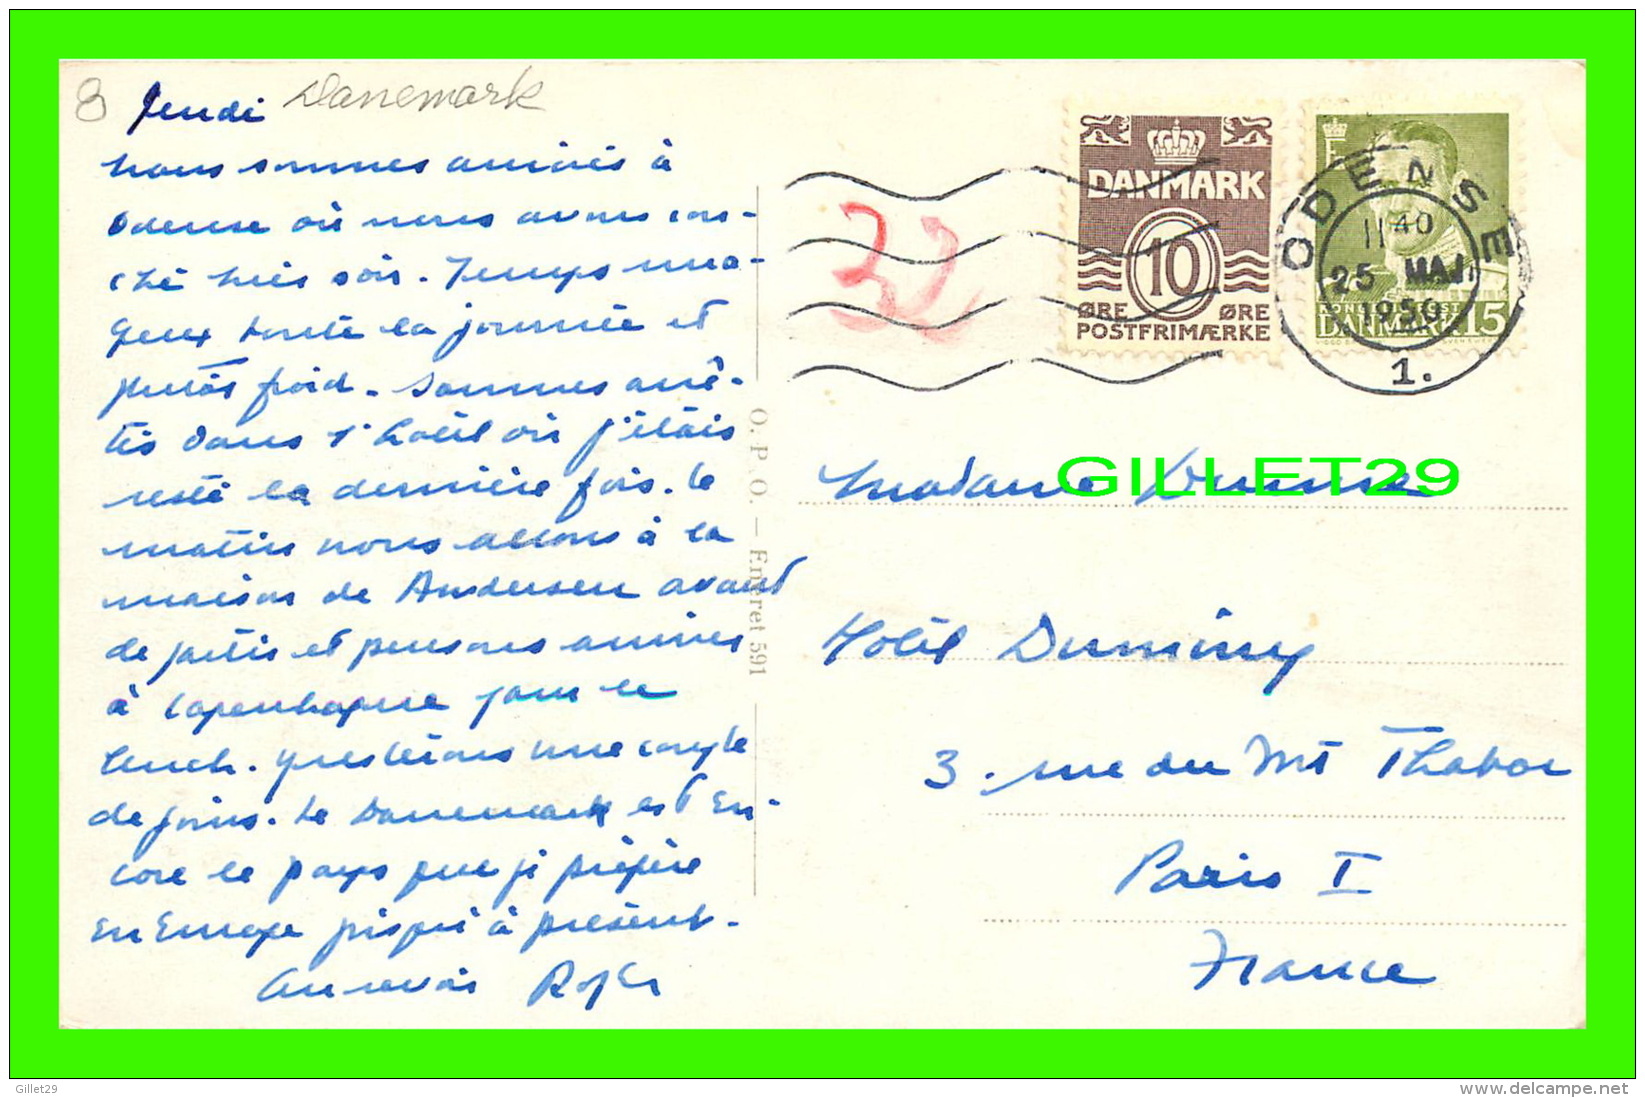 8 Jeudi Danemark
nous sommes arrivés à
Odense où nous avons cou-
ché hier soir. Temps nua-
geux toute la journée et
plutôt froid. Sommes arrê-
tés dans l'hôtel où j'étais
resté la dernière fois. Ce
matin nous allons à la
maison de Andersen avant
de partir et pensons arriver
à Copenhague pour le
lunch. Y resterons une couple
de jours. Le Danemark est en-
core le pays que je préfère
en Europe jusqu'à présent.
Au revoir Roger
22
DANMARK
10
ØRE ØRE
POSTFRIMÆRKE
ODENSE
11 40
25 MAJ
1950
1.
DANMARK 15
O. P. O. – Eneret 591
GILLET29
Madame
Hôtel Duminy
3. rue du Mt Thabor
Paris I
France
Gillet29
www.delcampe.net